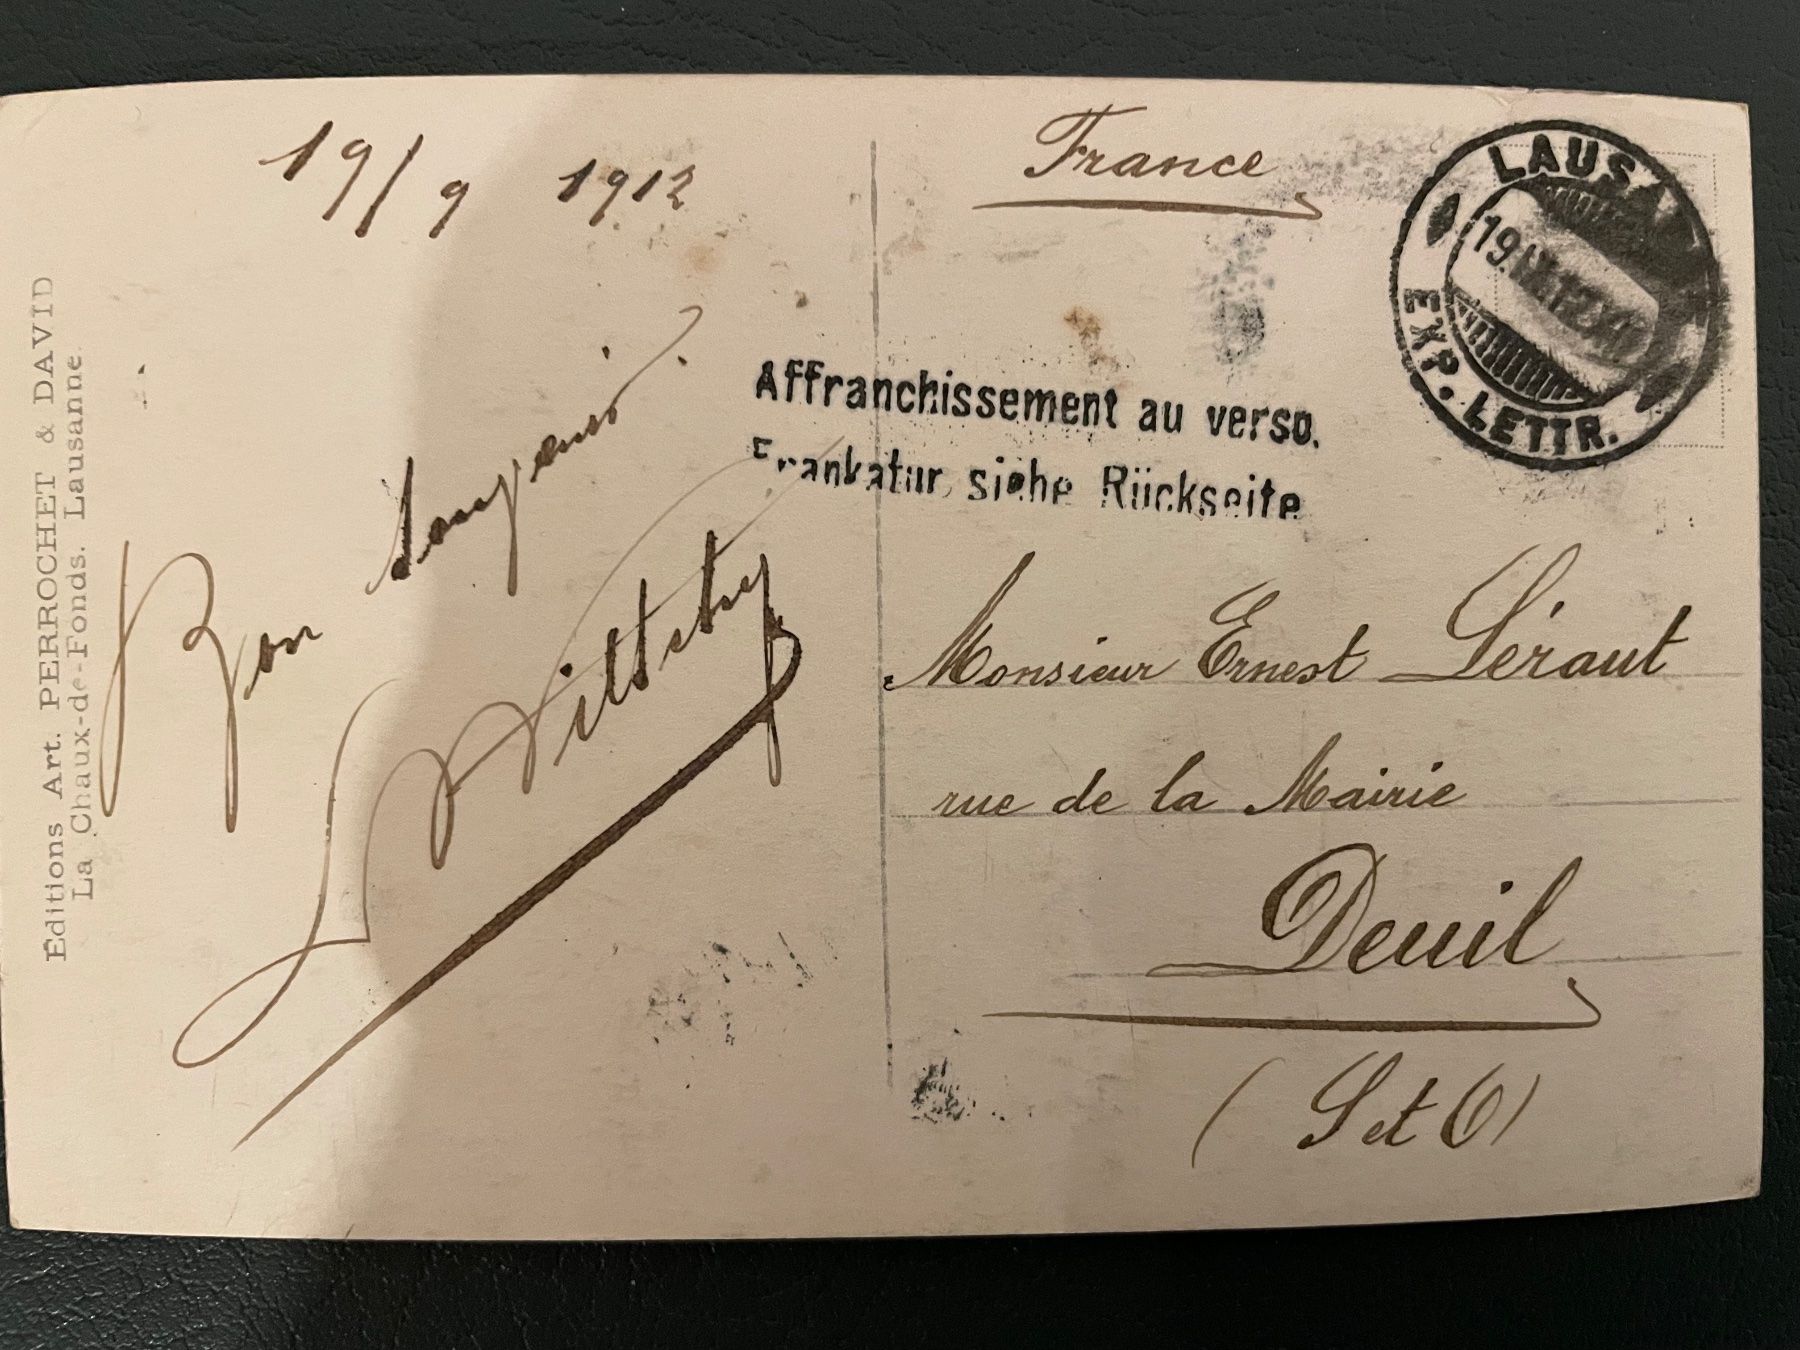 19/9 1912
Bon souvenir.
Editions Art. PERROCHET & DAVID
La Chaux-de-Fonds. Lausanne.
France
LAUSANNE
19.IX.12
EXP. LETTR.
Affranchissement au verso.
Frankatur siehe Rückseite
Monsieur Ernest Léraut
rue de la Mairie
Deuil
(S et O)